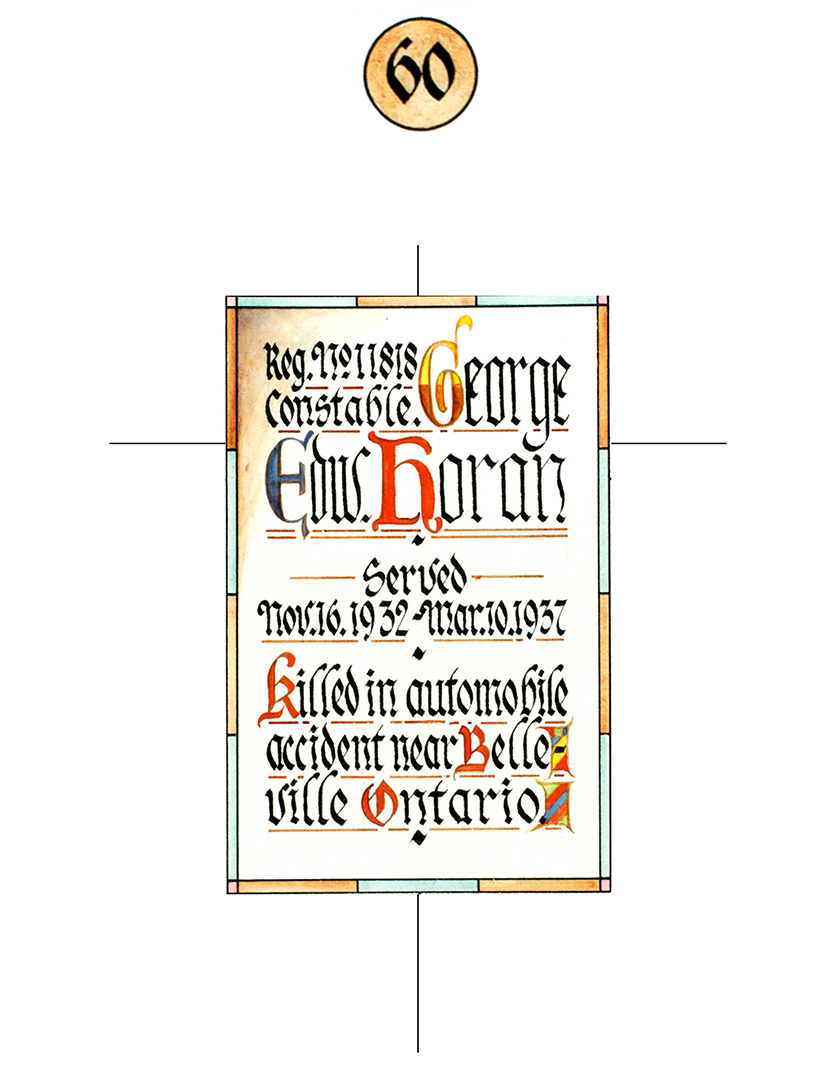 60
Reg. No 11818 George
Constable.
Edw. Horan
Served
Nov. 16. 1932-Mar. 10. 1937
Killed in automobile
accident near Belle-
ville Ontario.